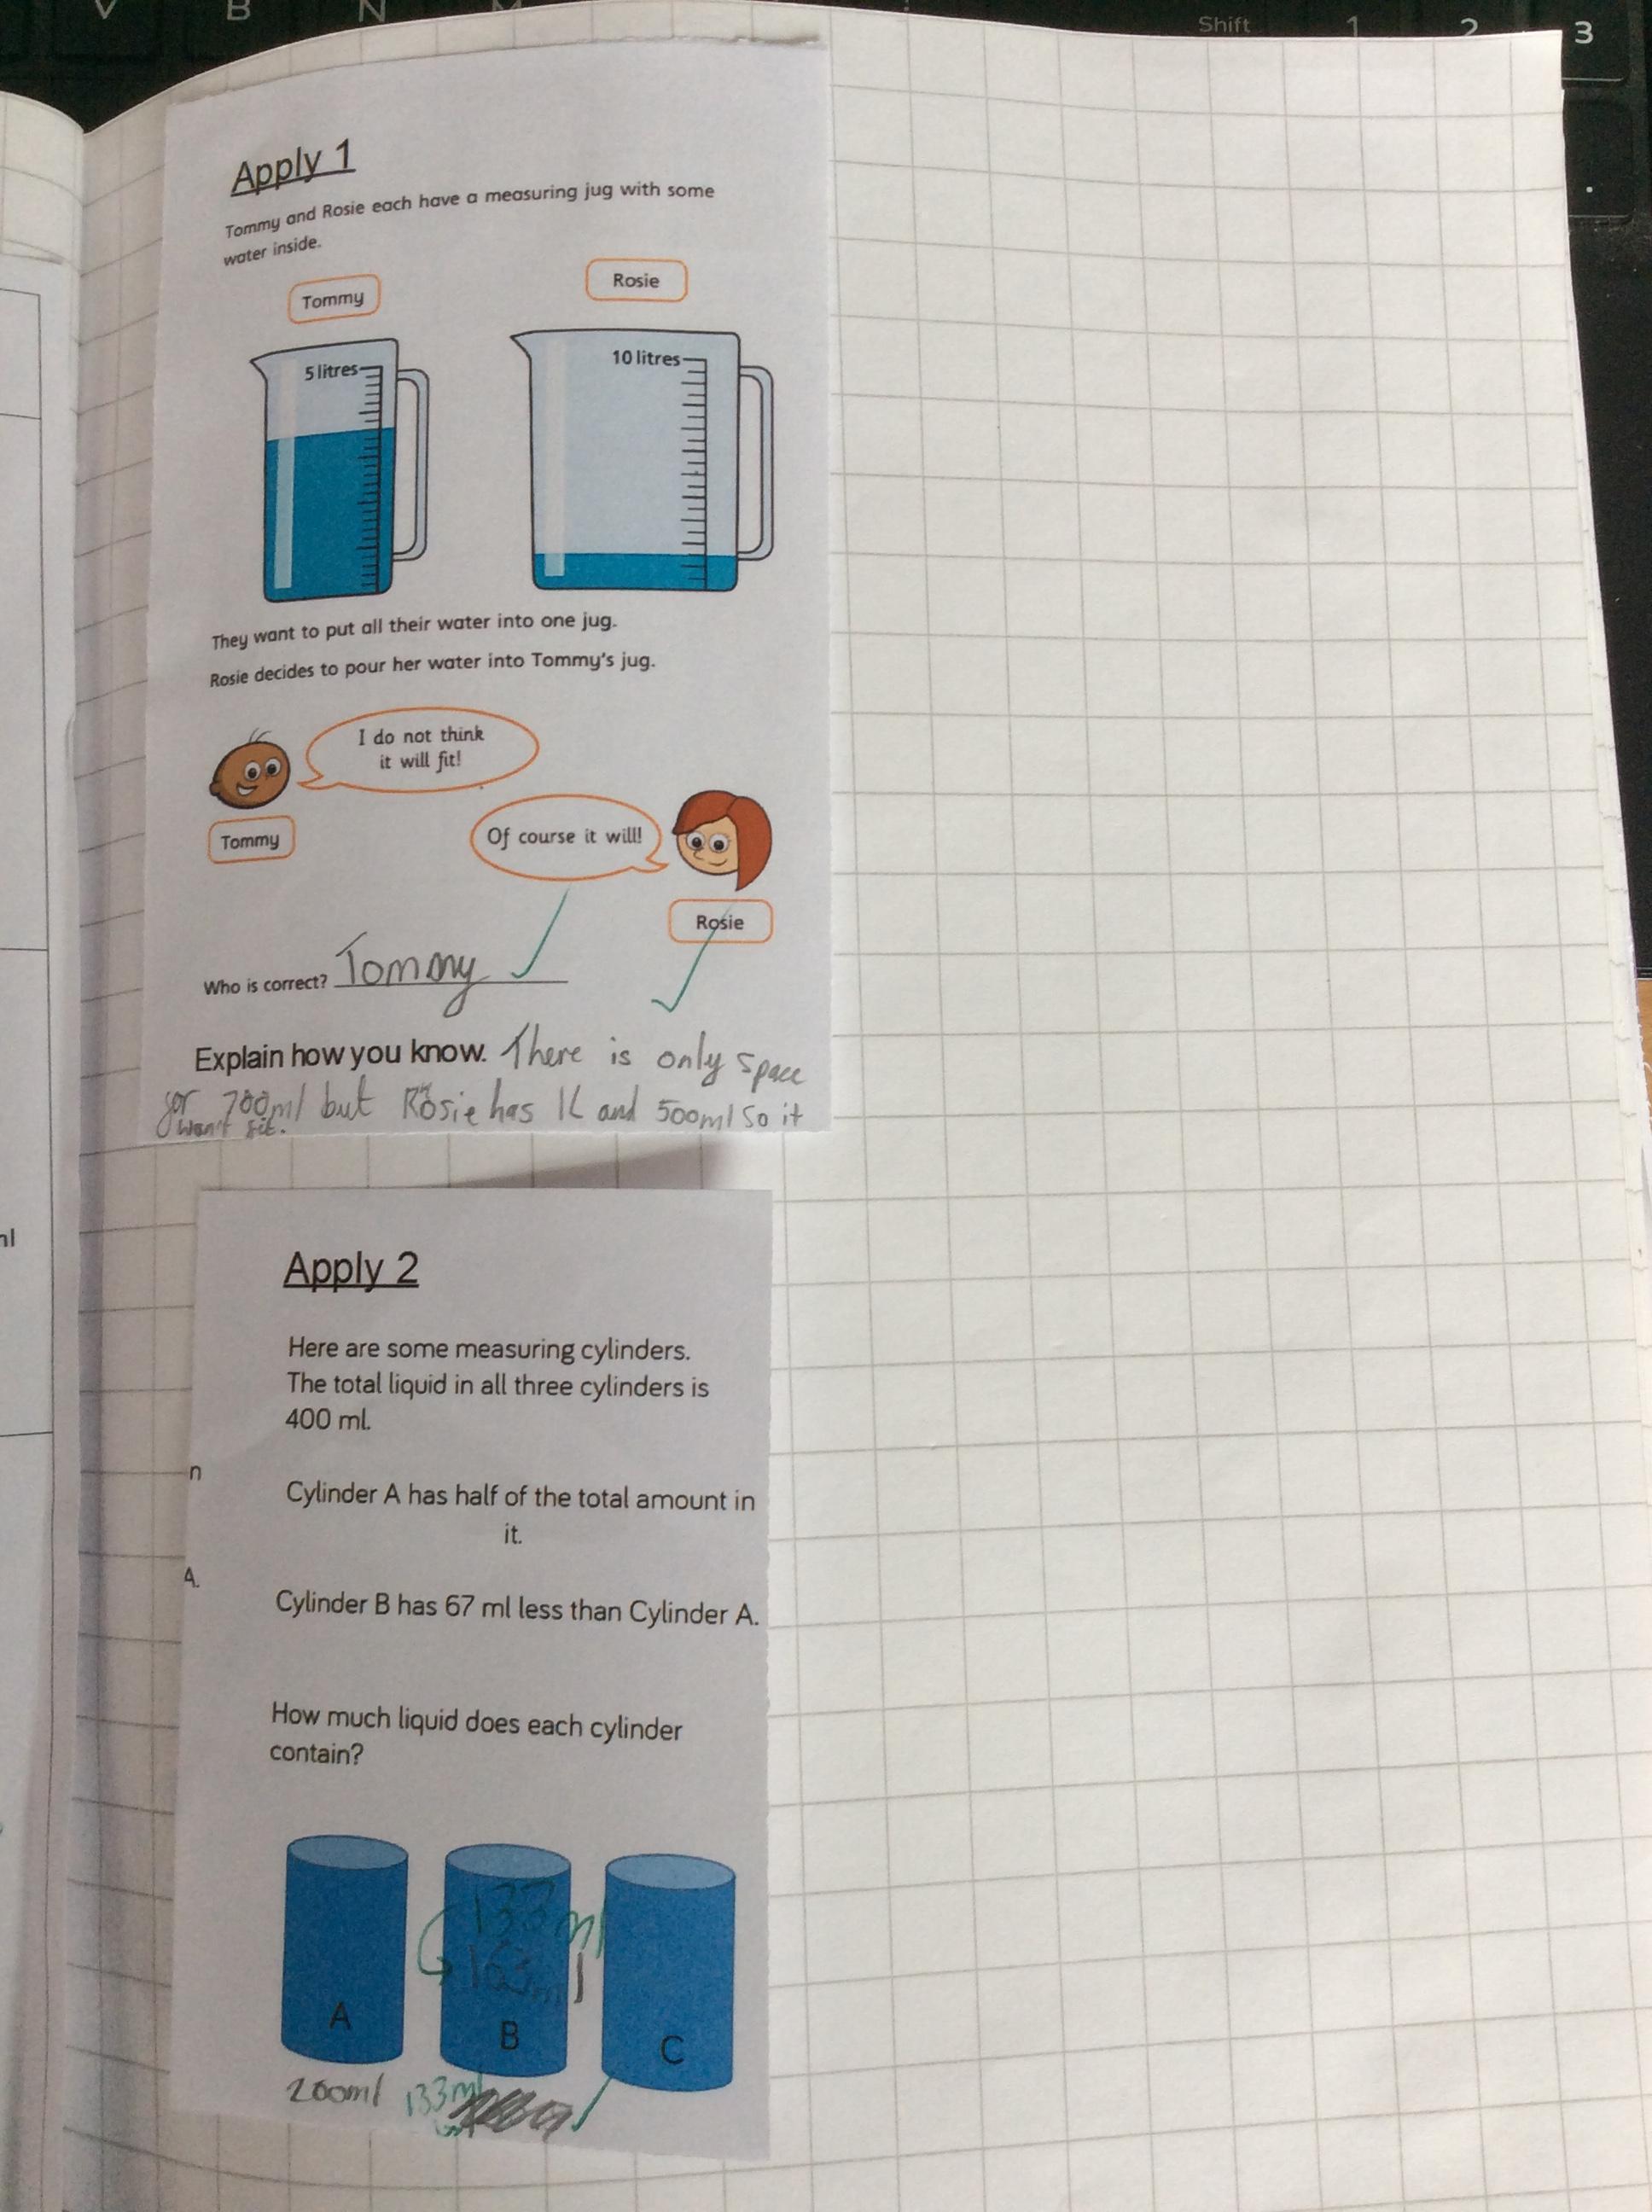 V B N M Shift 1 2 3
Apply 1
Tommy and Rosie each have a measuring jug with some
water inside.
Tommy
Rosie
5 litres
10 litres
They want to put all their water into one jug.
Rosie decides to pour her water into Tommy's jug.
I do not think
it will fit!
Tommy
Of course it will!
Rosie
Who is correct? Tommy
Explain how you know. There is only space
for 700ml but Rosie has 1L and 500ml so it
won't fit.
ml
Apply 2
Here are some measuring cylinders.
The total liquid in all three cylinders is
400 ml.
n
Cylinder A has half of the total amount in
it.
A.
Cylinder B has 67 ml less than Cylinder A.
How much liquid does each cylinder
contain?
133ml
163ml
A
B
C
200ml
133ml